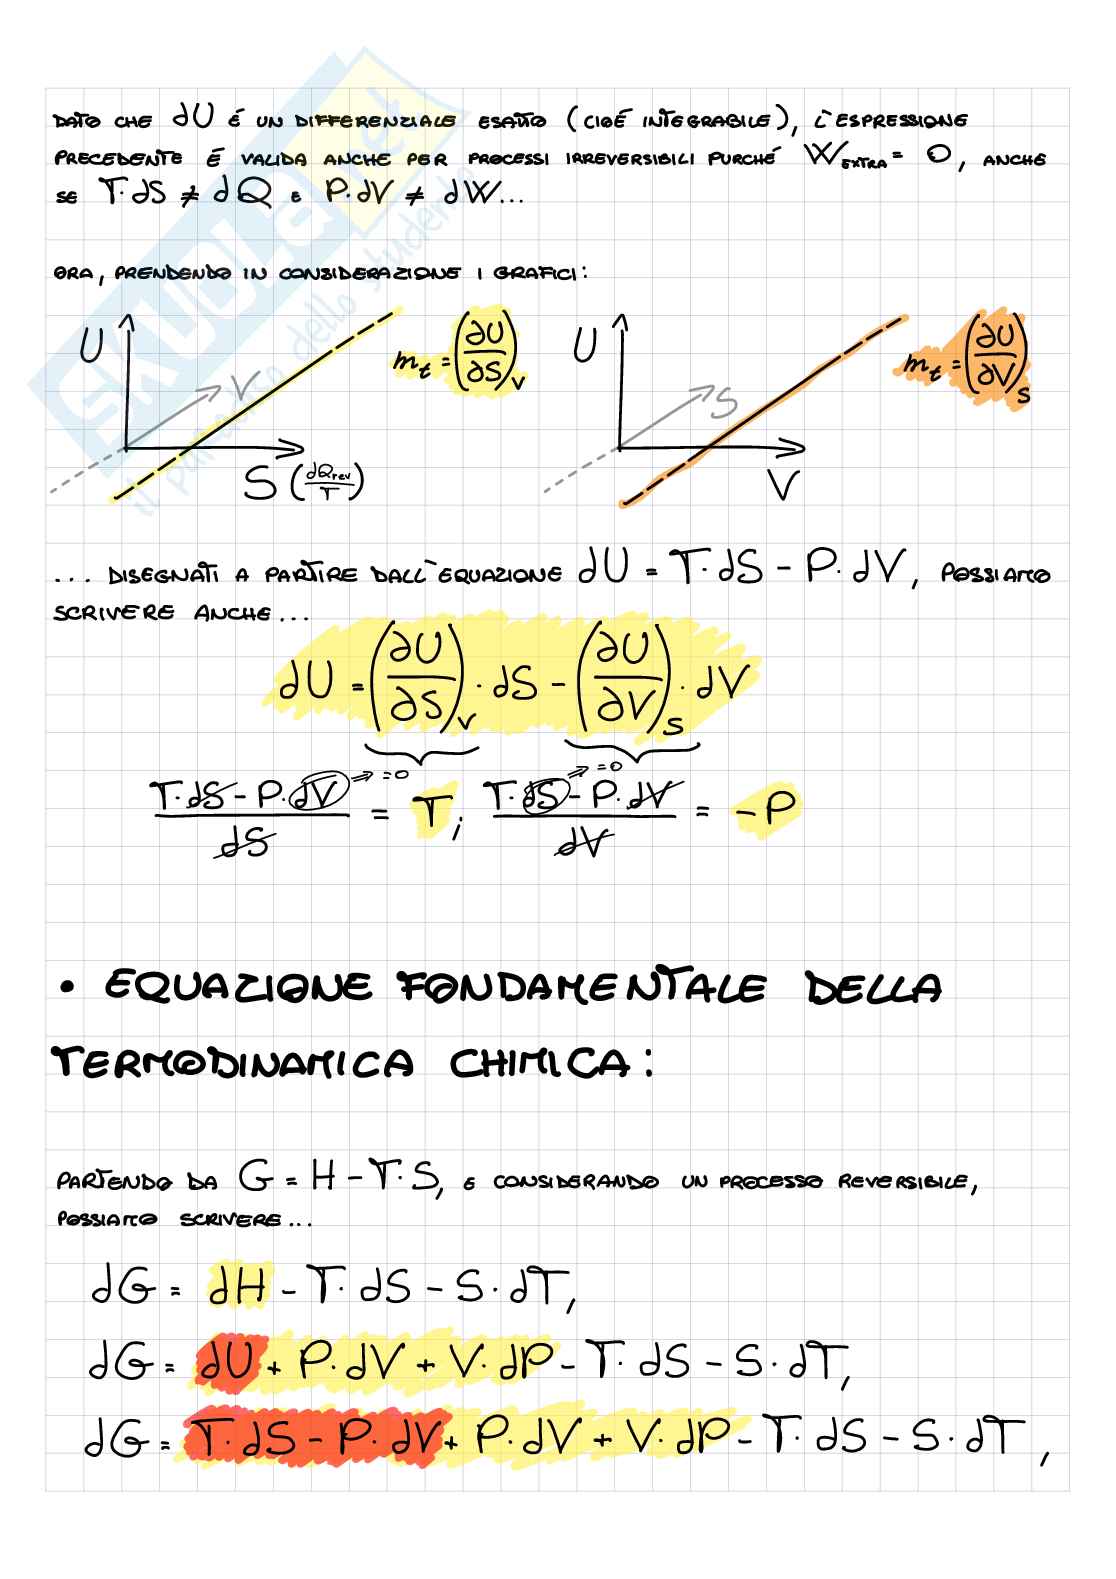 DATO CHE dU É UN DIFFERENZIALE ESATTO (CIOÉ INTEGRABILE), L'ESPRESSIONE
PRECEDENTE É VALIDA ANCHE PER PROCESSI IRREVERSIBILI PURCHÉ W_EXTRA = 0, ANCHE
SE T·dS ≠ dQ E P·dV ≠ dW...
ORA, PRENDENDO IN CONSIDERAZIONE I GRAFICI:
U V S (dQrev/T) m_t = (∂U/∂S)_V
U S V m_t = (∂U/∂V)_S
... DISEGNATI A PARTIRE DALL'EQUAZIONE dU = T·dS - P·dV, POSSIAMO
SCRIVERE ANCHE...
dU = (∂U/∂S)_V · dS - (∂U/∂V)_S · dV
(T·dS - P·dV)/dS = T; (T·dS - P·dV)/dV = -P
⇒ =0 ⇒ =0
• EQUAZIONE FONDAMENTALE DELLA
TERMODINAMICA CHIMICA:
PARTENDO DA G = H - T·S, E CONSIDERANDO UN PROCESSO REVERSIBILE,
POSSIAMO SCRIVERE...
dG = dH - T·dS - S·dT,
dG = dU + P·dV + V·dP - T·dS - S·dT,
dG = T·dS - P·dV + P·dV + V·dP - T·dS - S·dT,
SKUOLA.net
il paradiso dello studente